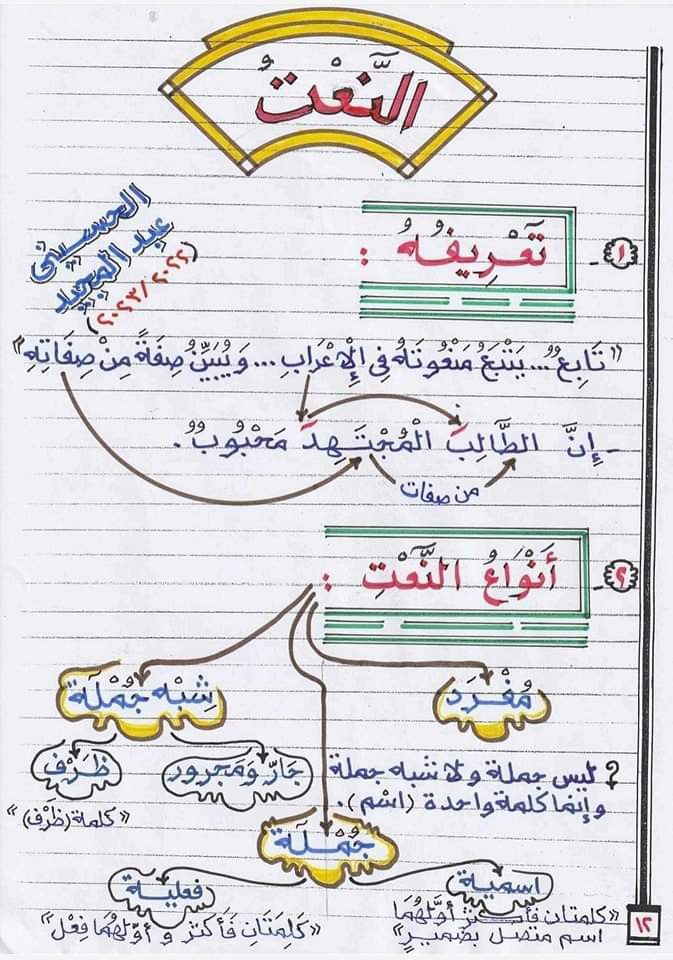 النَّعْتُ
الحسيني
عبد المجيد
(٢٠٢٣/٢٠٢٢)
١- تَعْرِيفُهُ :
"تَابِعٌ... يَتْبَعُ مَنْعُوتَهُ فِي الْإِعْرَابِ... وَيُبَيِّنُ صِفَةً مِنْ صِفَاتِهِ"
- إِنَّ الطَّالِبَ الْمُجْتَهِدَ مَحْبُوبٌ.
من صفات
٢- أَنْوَاعُ النَّعْتِ :
مُفْرَد
شِبْه جُمْلَة
ليس جملة ولا شبه جملة
وإنما كلمة واحدة (اسْم).
جَارّ وَمَجرور
ظَرْف
"كلمة (ظَرْف)"
جُمْلَة
اسمية
فعلية
"كلمتان فأكثر أوّلهُمَا
اسم متصل بضمير"
"كَلِمَتَانِ فَأَكثرْ وَ أوّلهُمَا فِعْل"
١٢